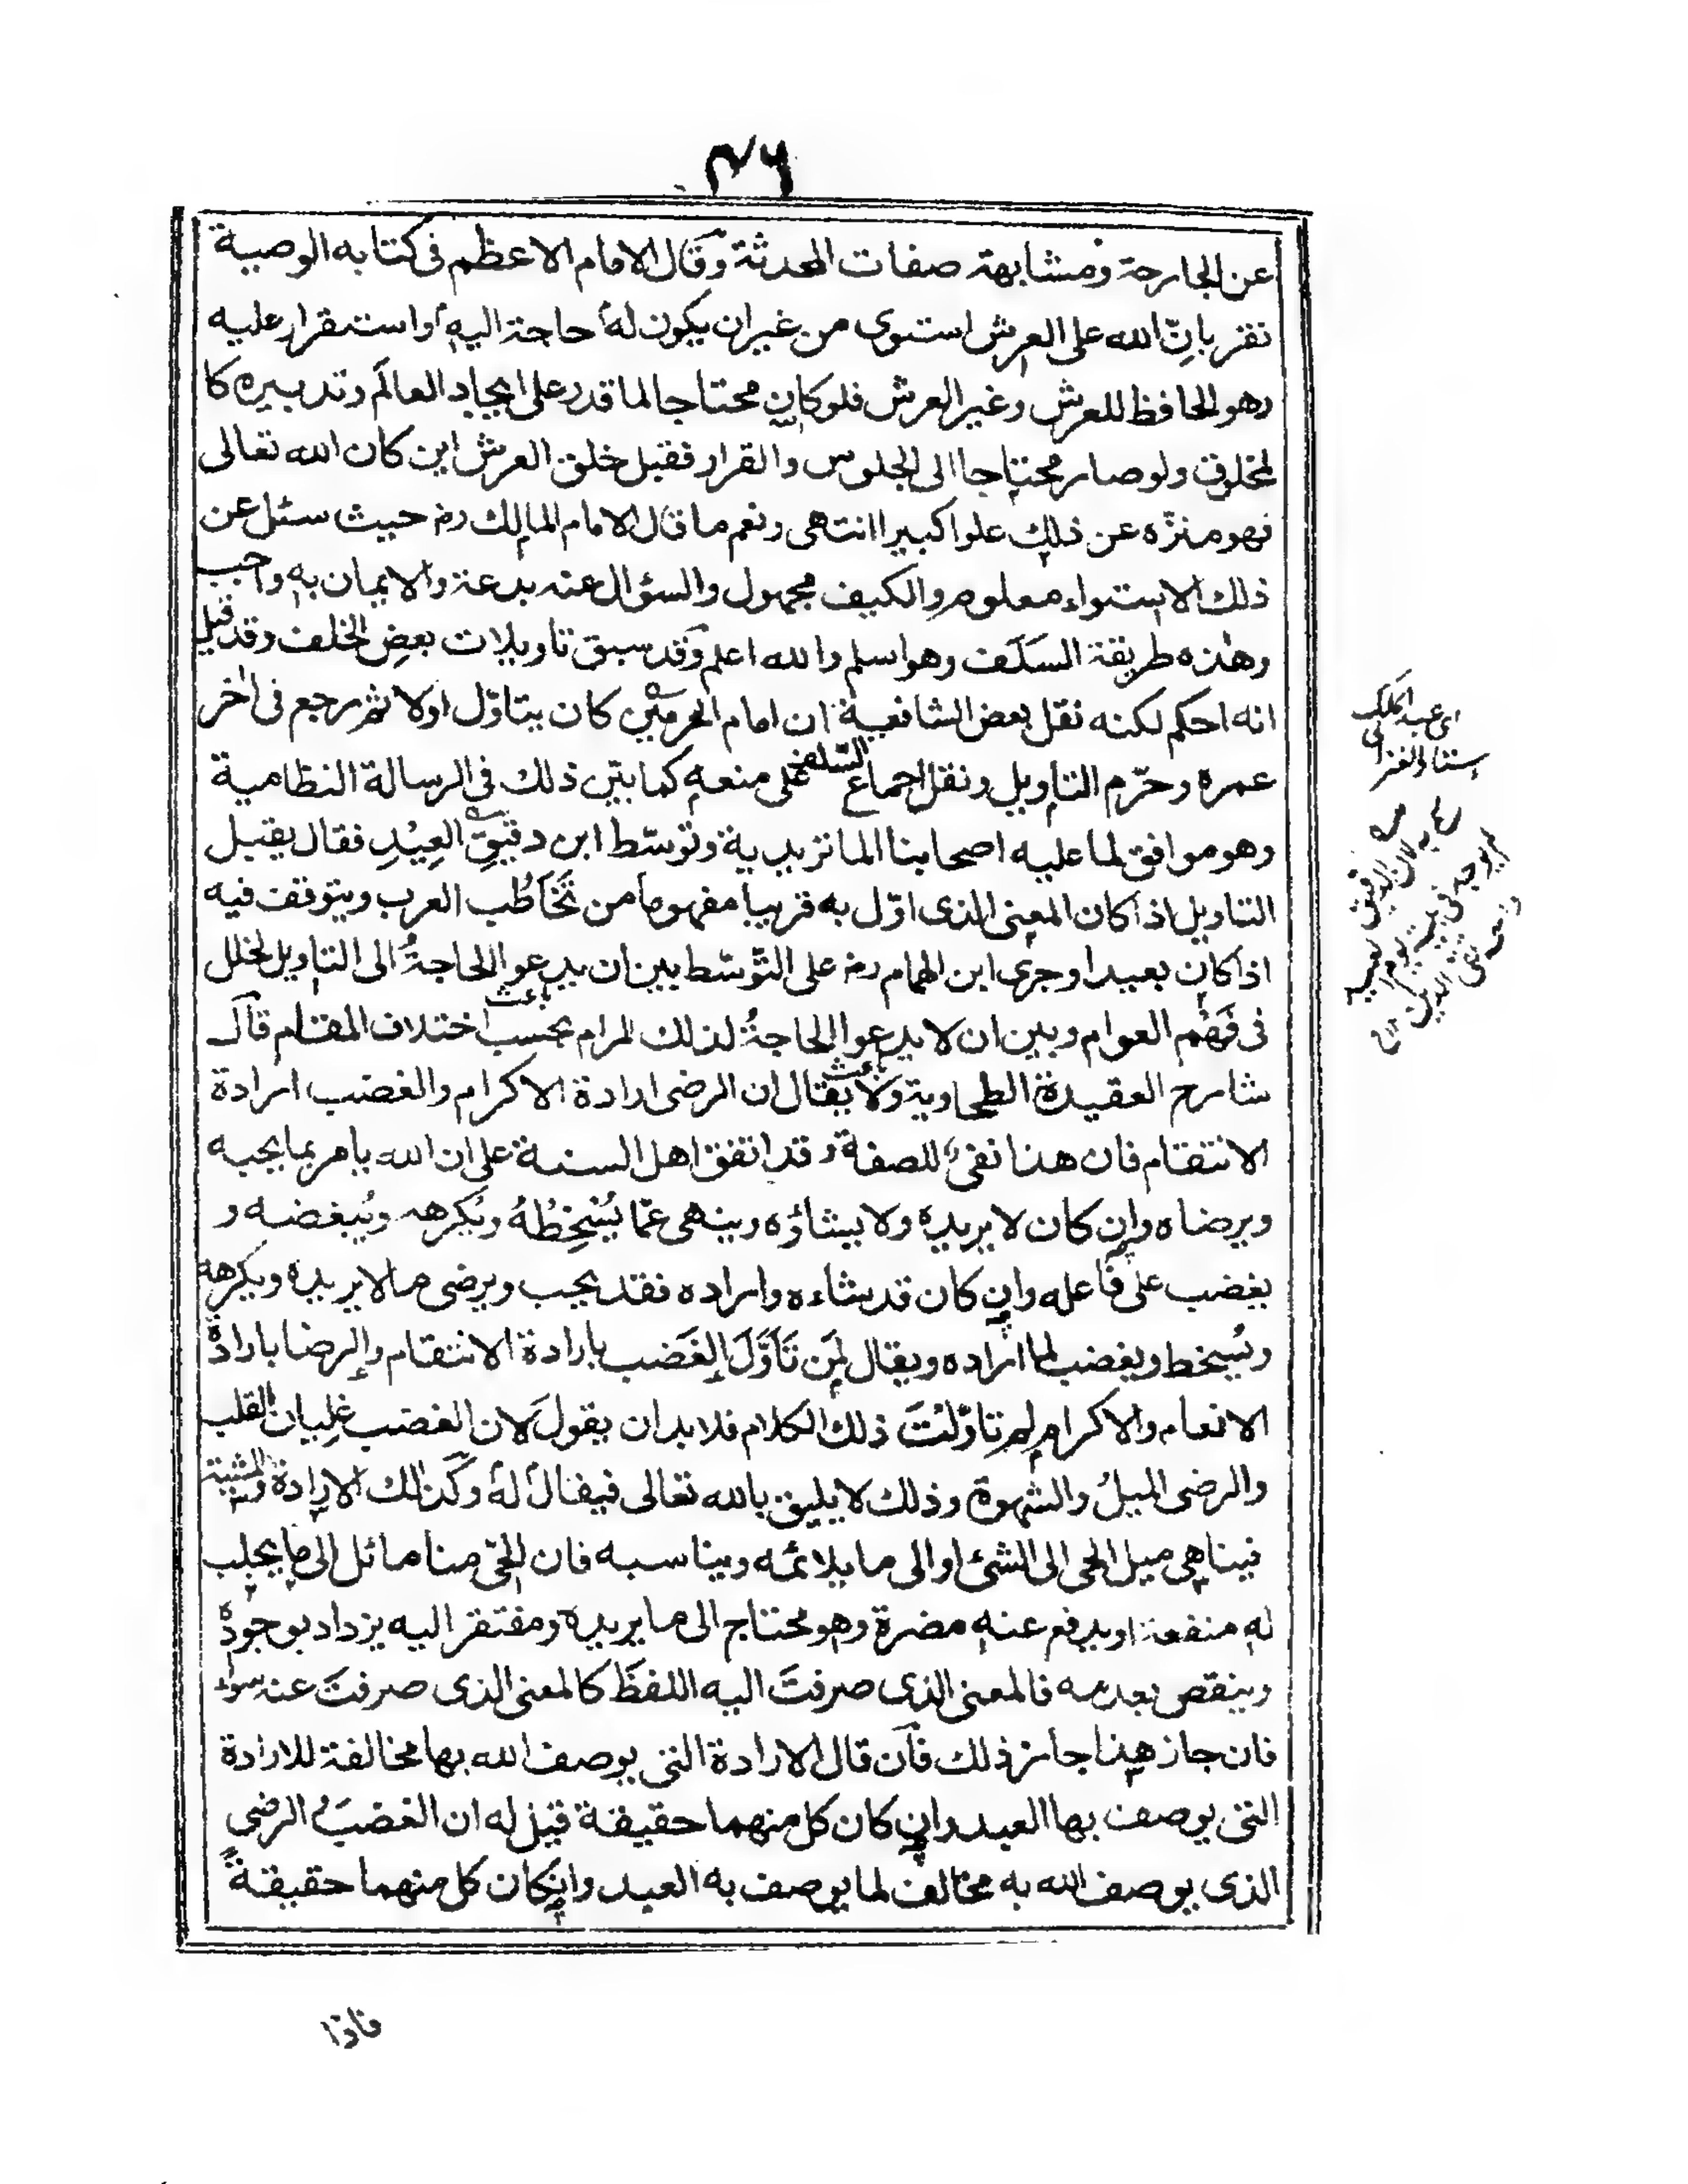 ٤٦
عن الجارحة ومشابهة صفات المحدثة وقال الامام الاعظم فى كتابه الوصية
نقر بانّ الله على العرش استوى من غير ان يكون له حاجة اليه واستقرار عليه
وهو الحافظ للعرش وغير العرش فلو كان محتاجا لما قدر على ايجاد العالم وتدبيره كا
لمخلوق ولو صار محتاجا الى الجلوس والقرار فقبل خلق العرش اين كان الله تعالى
فهو منزّه عن ذلك علوا كبيرا انتهى ونعم ما قال الامام المالك رح حيث سئل عن
ذلك الاستواء معلوم والكيف مجهول والسؤال عنه بدعة والايمان به واجب
وهذه طريقة السلف وهو اسلم والله اعلم وقد سبق تاويلات بعض الخلف وقد قيل
انه احكم لكنه نقل بعض الشافعية ان امام الحرمين كان يتاوّل اولا ثم رجع فى اخر
عمره وحرّم التاويل ونقل اجماع السلف على منعه كما بيّن ذلك فى الرسالة النظامية
وهو موافق لما عليه اصحابنا الماتريدية وتوسّط ابن دقيق العيد فقال يقبل
التاويل اذا كان المعنى الذى اوّل به قريبا مفهوما من تَخَاطُب العرب ويتوقف فيه
اذا كان بعيدا وجرى ابن الهمام رح على التوسّط بين ان يدعو الحاجةُ الى التاويل لخلل
فى فَهْم العوام وبين ان لا يدعوا الحاجةُ لذلك المرام بحسب اختلاف المقام قال
شارح العقيدة الطحاوية ولا يقال ان الرضى ارادة الاكرام والغضب ارادة
الانتقام فان هذا نفى للصفة وقد اتفق اهل السنة على ان الله يامر بما يحبه
ويرضاه وان كان لا يريده ولا يشاؤه وينهى عمّا يُسْخِطُهُ ويُكرهه ويُبغضه و
يغضب على فاعله وان كان قد شاءه واراده فقد يحب ويرضى ما لا يريده ويكرهه
ويُسخط ويغضب لما اراده ويقال لمَن تَأوَّلَ الغَضب بارادة الانتقام والرضا بارادة
الانعام والاكرام لم تاوّلتَ ذلك الكلام فلا بد ان يقول لان الغضب غليان القلب
والرضى الميلُ والشهوة وذلك لا يليق بالله تعالى فيقال له وكذلك الارادة والمشية
فينا هى ميل الحى الى الشئ او الى ما يلائمه ويناسبه فان الحىّ منا مائل الى ما يجلب
له منفعة او يدفع عنه مضرة وهو محتاج الى ما يريده ومفتقر اليه يزداد بوجوده
وينقص بعدمه فالمعنى الذى صرفتَ اليه اللفظَ كالمعنى الذى صرفتَ عنه سواء
فان جاز هذا جاز ذلك فان قال الارادة التى يوصف الله بها مخالفة للارادة
التى يوصف بها العبد وان كان كل منهما حقيقة قيل له ان الغضب والرضى
الذى يوصف الله به مخالف لما يوصف به العبد وان كان كل منهما حقيقة
اى عبد الملك
استاذ الغزالى
فاذا